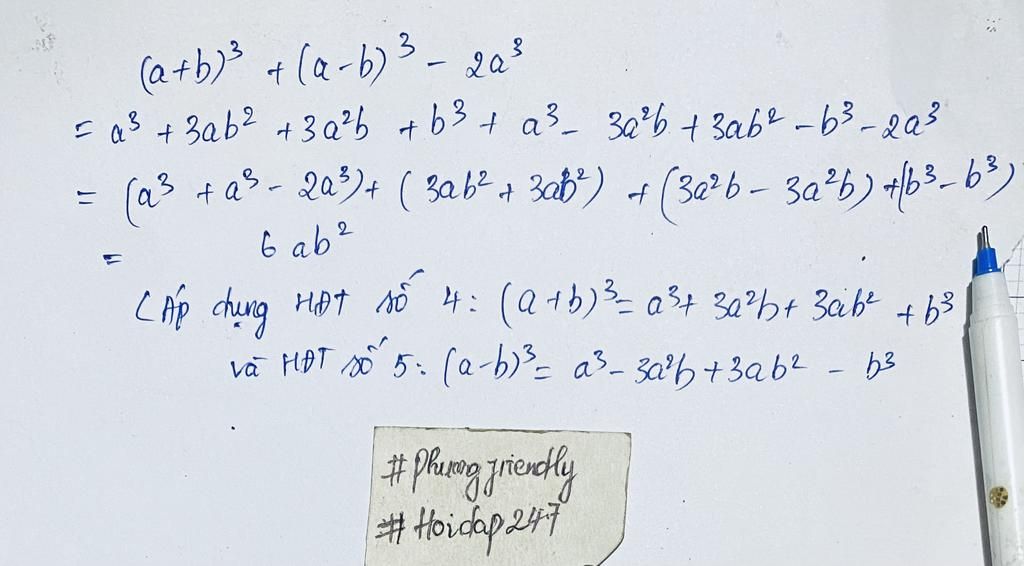 (a+b)³ + (a-b)³ - 2a³
= a³ + 3ab² + 3a²b + b³ + a³ - 3a²b + 3ab² - b³ - 2a³
= (a³ + a³ - 2a³) + (3ab² + 3ab²) + (3a²b - 3a²b) + (b³ - b³)
= 6ab²
(Áp dụng HĐT số 4: (a+b)³ = a³ + 3a²b + 3ab² + b³
và HĐT số 5: (a-b)³ = a³ - 3a²b + 3ab² - b³
# Phuongfriendly
# Hoidap247